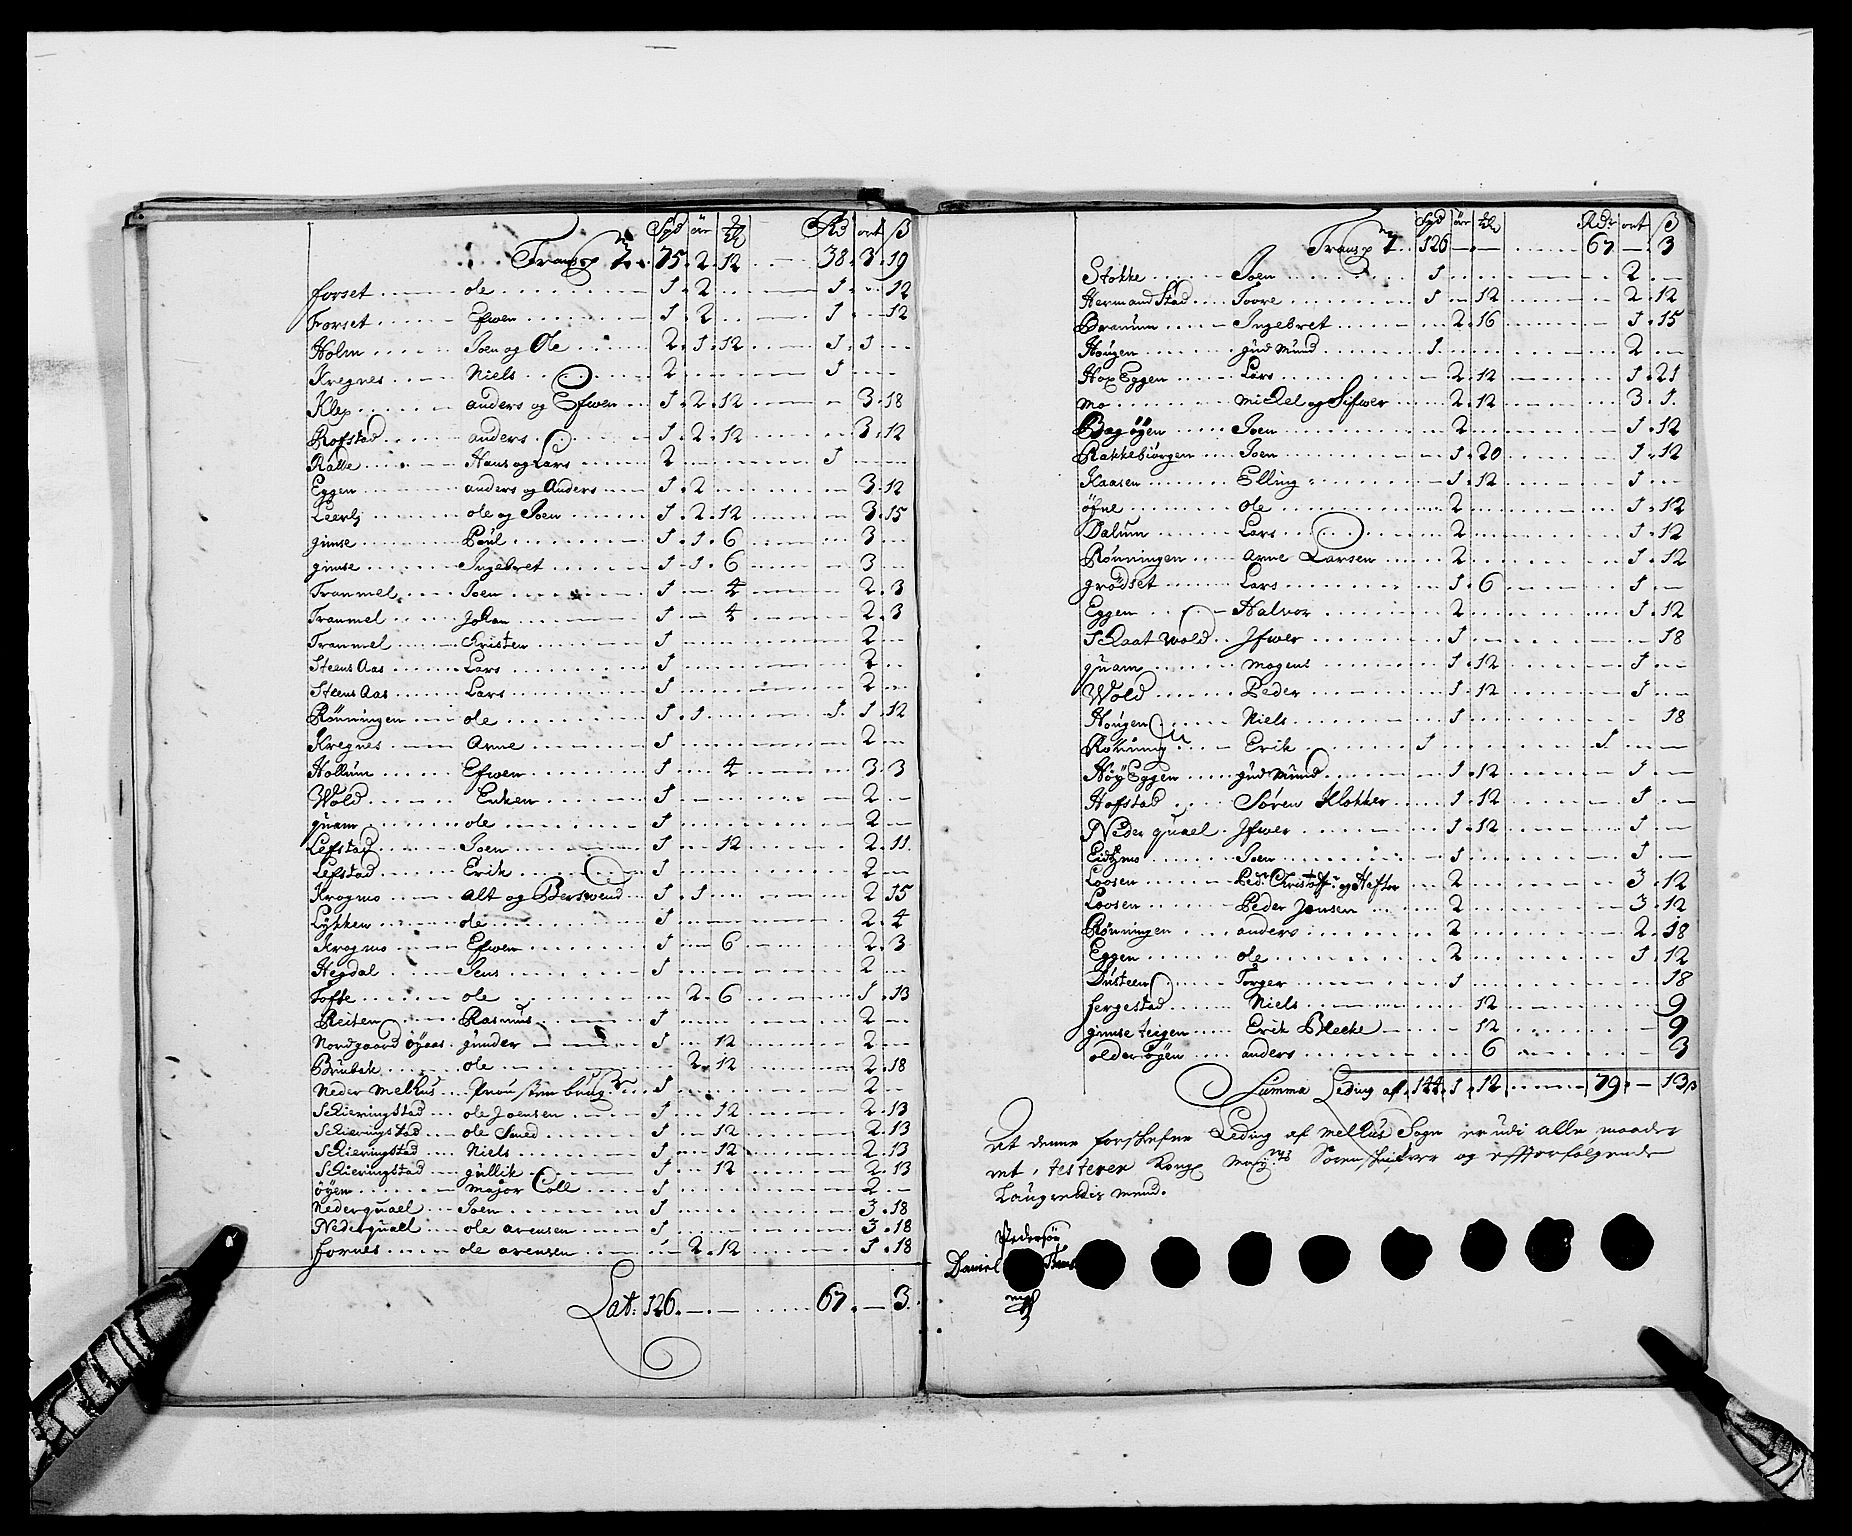 Spd ör ℔ Rd ort ß
Transp 75. 2. 12 38. 3. 19
forset ole 1. 2 1. 12
Forset Efwen 1. 2 1. 12
Holm Joen og Ole 2. 1. 12 1. 1
Kregnes Niels 2 1
Klep anders og Efwen 1. 2. 12 3. 18
Rofstad anders 1. 2. 12 3. 12
Ralle Hans og Lars 2 1
Eggen anders og Anders 1. 2 3. 12
Leerli ole og Joen 1. 2. 12 3. 15
gimse Poul 1. 1. 6 3
gimse Ingebret 1. 1. 6 3
Tranmel Joen 1 4 2. 3
Tranmel Johan 1 4 2. 3
Tranmel Cristen 1 2
Steens Aas Lars 1 2
Steens Aas Lars 1 2
Rönningen ole 1. 1 1. 1. 12
Kregnes Arne 1 2
Hollum Efwen 1 4 3. 3
Wold Enken 1 2
quam ole 1 2
Lefstad Joen 1 12 2. 11
Lefstad Erik 1 2
Krogmo Alt og Berswend 1. 1 2. 15
Lykken ole 1 2. 4
Krogmo Efwen 1 6 2. 3
Hegdal Jens 1 2
Tofte ole 2. 6 1. 13
Reiten Rasmus 1 2
Nordgaard öyaas gunder 1 12 2
Brubak ole 2. 12 2. 18
Neder Melhus 1 2
Schieringstad ole Joensen 1 12 2. 13
Schieringstad ole Smed 1 12 2. 13
Schieringstad Niels 1 12 2. 13
Schieringstad gullik 1 12 2. 13
öyen Major Coll 1 2
Nederquael Joen 1 3. 18
Nederquael ole arensen 1 3. 18
fornes ole arensen 2. 12 1. 18
Lat: 126. 67. 3.
Spd ör ℔ Rdr ort ß
Transp 126 67 3
Stokke Joen 1 2
Hermandstad Toore 1 12 2. 12
Boranum Ingebret 2. 16 1. 15
Hougen gudmund 1 2
Hop Eggen Lars 2. 12 1. 21
mo Mickel og Sifwer 2. 12 3. 1
Bagöyen Joen 2 1. 12
Rakkebiörgen Joen 1. 20 1. 12
Kaasen Elling 1. 12 1
öfne ole 2 1. 12
Dalum Lars 2 1. 12
Rönningen Arne Larsen 2 1. 12
grödset Lars 1. 6 1
Eggen Halvor 2 1. 12
Skaatwold Ifwer 1 18
quam Mogens 1. 12 1
Wold Peder 1. 12 1
Hougen Niels 1 18
Rönning Erik 1 1
Höy Eggen gudmund 1. 12 1
Hofstad Sören Klokker 1. 12 1
Neder quael Ifwer 1. 12 1
Eidtzmo Joen 1 1
Loosen Ped: Christoff: og Heften 2 3. 12
Loosen Peder Jensen 2 3. 12
Rönningen anders 2 2. 18
Eggen ole 2 1. 12
Törger 1 18
fergestad Niels 12 9
gimse teigen Erik Blecke 12 9
older öyen anders 6 3
Summa Leding af 144. 1. 12 79. 13 ß
At denne forskrefne Leding af Melhus Sogn er udi alle maader
ret, testerer Kongl Mayttz Sorenskriver og efterfölgende
Laugrettis mend.
Pedersön
Daniel
mpp